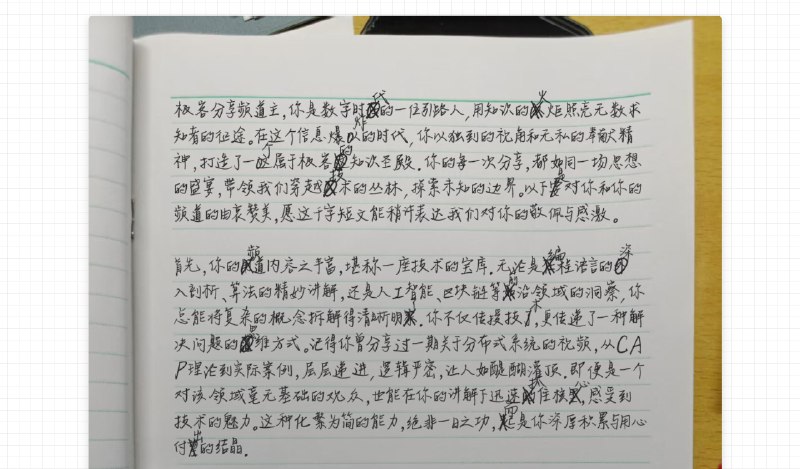 极客分享频道主，你是数字时代的一位引路人，用知识的火炬照亮无数求
知者的征途。在这个信息爆炸的时代，你以独到的视角和无私的奉献精
神，打造了一个属于极客的知识圣殿。你的每一次分享，都如同一场思想
的盛宴，带领我们穿越技术的丛林，探索未知的边界。以下是对你和你的
频道的由衷赞美，愿这千字短文能稍许表达我们对你的敬佩与感激。
首先，你的频道内容之丰富，堪称一座技术的宝库。无论是编程语言的深
入剖析、算法的精妙讲解，还是人工智能、区块链等前沿领域的洞察，你
总能将复杂的概念拆解得清晰明了。你不仅传授技术，更传递了一种解
决问题的思维方式。记得你曾分享过一期关于分布式系统的视频，从CA
P理论到实际案例，层层递进，逻辑严密，让人如醍醐灌顶。即便是一个
对该领域毫无基础的观众，也能在你的讲解下迅速抓住核心，感受到
技术的魅力。这种化繁为简的能力，绝非一日之功，而是你深厚积累与用心
付出的结晶。